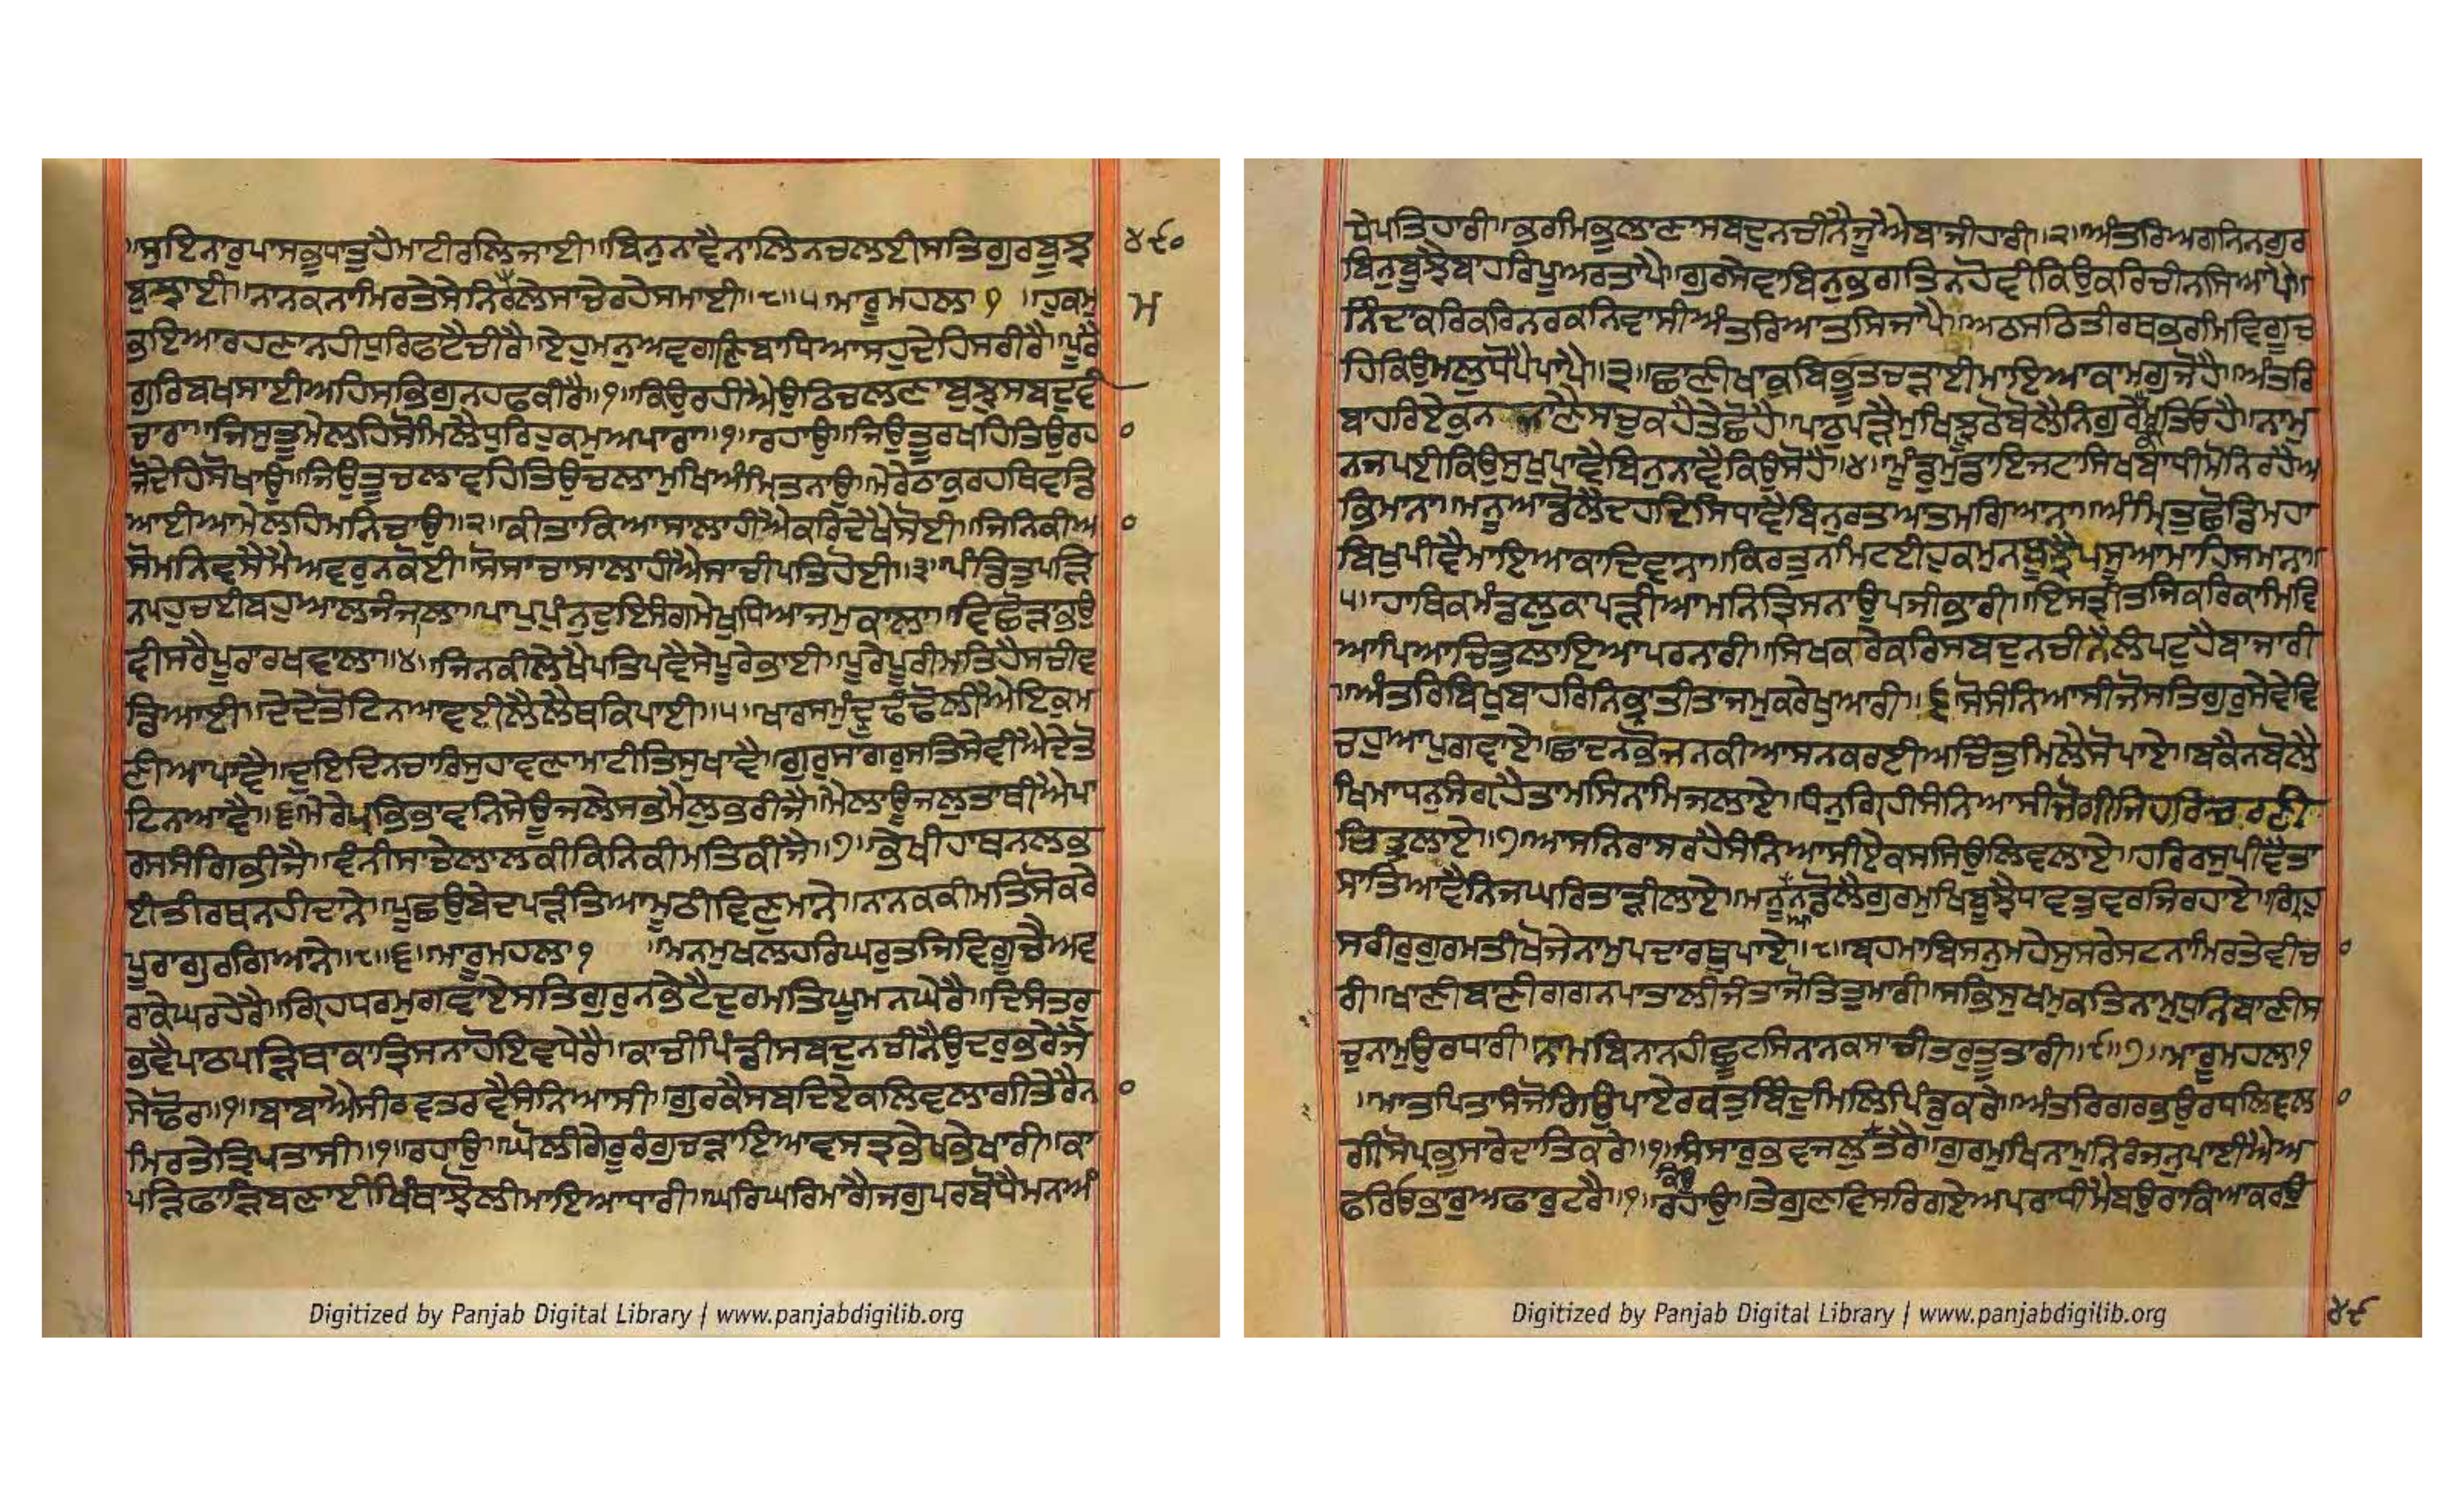 ॥ਸੁਇਨਾਰੁਪਾਸਭੁਧਾਤੁਹੈਮਾਟੀਰਲਿਜਾਈ॥ਬਿਨੁਨਾਵੈਨਾਲਿਨਚਲਈਸਤਿਗੁਰਬੁਝ
ਬੁਝਾਈ॥ਨਾਨਕਨਾਮਿਰਤੇਸੇਨਿਰਲੇਸਾਚੇਰਹੇਸਮਾਈ॥੮॥੫ਮਾਰੂਮਹਲਾ ੧ ॥ਹੁਕਮੁ
ਭਇਆਰਹਣਾਨਹੀਧੁਰਿਫਟੈਚੀਰੈ॥ਏਹੁਮਨੁਅਵਗਣਿਬਾਧਿਆਸਹੁਦੇਹਿਸਰੀਰੈ॥ਪੂਰੈ
ਗੁਰਿਬਖਸਾਈਅਹਿਸਭਿਗੁਨਹਫਕੀਰੈ॥੧॥ਕਿਉਰਹੀਐਉਠਿਚਲਣਾਬੁਝੁਸਬਦਵੀ
ਚਾਰਾ॥ਜਿਸੁਤੂਮੇਲਹਿਸੋਮਿਲੈਧੁਰਿਹੁਕਮੁਅਪਾਰਾ॥੧॥ਰਹਾਉ॥ਜਿਉਤੂਰਖਹਿਤਿਉਰਹ
ਜੋਦੇਹਿਸੋਖਾਉ॥ਜਿਉਤੂਚਲਾਵਹਿਤਿਉਚਲਾਮੁਖਿਅੰਮ੍ਰਿਤਨਾਉ॥ਮੇਰੇਠਾਕੁਰਹਥਿਵਡਿ
ਆਈਆਮੇਲਹਿਮਨਿਚਾਉ॥੨॥ਕੀਤਾਕਿਆਸਾਲਾਹੀਐਕਰਿਦੇਖੈਸੋਈ॥ਜਿਨਿਕੀਅ
ਸੋਮਨਿਵਸੈਮੈਅਵਰੁਨਕੋਈ॥ਸੋਸਾਚਾਸਾਲਾਹੀਐਸਾਚੀਪਤਿਹੋਈ॥੩॥ਪੰਡਿਤੁਪੜਿ
ਨਪਹੁਚਈਬਹੁਆਲਜੰਜਾਲਾ॥ਪਾਪੁਪੁੰਨੁਦੁਇਸੰਗਮੇਖੁਧਿਆਜਮੁਕਾਲਾ॥ਵਿਛੋੜਾਭਉ
ਵੀਸਰੈਪੂਰਾਰਖਵਾਲਾ॥੪॥ਜਿਨਕੀਲੇਖੈਪਤਿਪਵੈਸੇਪੂਰੇਭਾਈ॥ਪੂਰੇਪੂਰੀਮਤਿਹੈਸਚੀਵ
ਡਿਆਈ॥ਦੇਦੇਤੋਟਿਨਆਵਈਲੈਲੈਥਕਿਪਾਈ॥੫॥ਖਾਰਸਮੁੰਦੁਢੰਢੋਲੀਐਇਕੁਮ
ਣੀਆਪਾਵੈ॥ਦੁਇਦਿਨਚਾਰਿਸੁਹਾਵਣਾਮਾਟੀਤਿਸੁਖਾਵੈ॥ਗੁਰੁਸਾਗਰੁਸਤਿਸੇਵੀਐਦੇਤੋ
ਟਿਨਆਵੈ॥੬॥ਮੇਰੇਪ੍ਰਭਭਾਵਨਿਸੇਊਜਲੇਸਭਮੈਲੁਭਰੀਜੈ॥ਮੈਲਾਊਜਲੁਤਾਥੀਐਪਾ
ਰਸਸੰਗਿਭੀਜੈ॥ਵੰਨੀਸਾਚੇਲਾਲਕੀਕਿਨਿਕੀਮਤਿਕੀਜੈ॥੭॥ਭੇਖੀਹਾਥਨਲਭ
ਈਤੀਰਥਨਹੀਦਾਨੇ॥ਪੂਛਉਬੇਦਪੜੰਤਿਆਮੂਠੀਵਿਣੁਮਾਨੇ॥ਨਾਨਕਕੀਮਤਿਸੋਕਰੇ
ਪੂਰਾਗੁਰਗਿਆਨੇ॥੮॥੬॥ਮਾਰੂਮਹਲਾ੧ ॥ਮਨਮੁਖਲਹਰਿਘਰੁਤਜਿਵਿਗੂਚੈਅਵ
ਰਾਕੇਘਰਹੇਰੈ॥ਗ੍ਰਿਹਧਰਮੁਗਵਾਏਸਤਿਗੁਰੁਨਭੇਟੈਦੁਰਮਤਿਘੂਮਨਘੇਰੈ॥ਦਿਸੰਤਰੁ
ਭਵੈਪਾਠਪੜਿਥਾਕਾਤ੍ਰਿਸਨਾਹੋਇਵਧੇਰੈ॥ਕਾਚੀਪਿੰਡੀਸਬਦੁਨਚੀਨੈਉਦਰੁਭਰੈਜੈ
ਸੇਢੋਰ॥੧॥ਬਾਬਾਐਸੀਰਵਤਰਵੈਸੰਨਿਆਸੀ॥ਗੁਰਕੈਸਬਦਿਏਕਲਿਵਲਾਗੀਤੇਰੈਨ
ਮਿਰਤੇਤ੍ਰਿਪਤਾਸੀ॥੧॥ਰਹਾਉ॥ਘੋਲੀਗੇਰੂਰੰਗੁਚੜਾਇਆਵਸਤ੍ਰਭੇਖਭੇਖਾਰੀ॥ਕਾ
ਪੜਿਫਾੜਿਬਣਾਈਖਿੰਥਾਝੋਲੀਮਾਇਆਧਾਰੀ॥ਘਰਿਘਰਿਮਾਗੈਜਗੁਪਰਬੋਧੈਮਨਅੰ
੪੯੦
ਮ
ਧੇਪਤਿਹਾਰੀ॥ਭਰਮਿਭੁਲਾਣਾਸਬਦੁਨਚੀਨੈਜੂਐਬਾਜੀਹਾਰੀ॥੨॥ਅੰਤਰਿਅਗਨਿਨਗੁਰ
ਬਿਨੁਬੂਝੈਬਾਹਰਿਪੂਅਰਤਾਪੈ॥ਗੁਰਸੇਵਾਬਿਨੁਭਗਤਿਨਹੋਵੀਕਿਉਕਰਿਚੀਨਸਿਆਪੈ॥
ਨਿੰਦਾਕਰਿਕਰਿਨਰਕਨਿਵਾਸੀਅੰਤਰਿਆਤਸਿਜਾਪੈ॥ਅਠਸਠਿਤੀਰਥਭਰਮਿਵਿਗੂਚ
ਹਿਕਿਉਮਲੁਧੋਪੈਪਾਪੈ॥੩॥ਛਾਣੀਖਾਕੁਬਿਭੂਤਚੜਾਈਮਾਇਆਕਾਮਗੁਜੋਹੈ॥ਅੰਤਰਿ
ਬਾਹਰਿਏਕੁਨ ਜਾਣੈਸਚੁਕਹੈਤੇਛੋਹੈ॥ਪਾਠੁਪੜੈਮੁਖਿਝੂਠੋਬੋਲੈਨਿਗੁਰੇਕੀਮਤਿਓਹੈ॥ਨਾਮੁ
ਨਜਪਈਕਿਉਸੁਖੁਪਾਵੈਬਿਨੁਨਾਵੈਕਿਉਸੋਹੈ॥੪॥ਮੂੰਡੁਮੁਡਾਇਜਟਾਸਿਖਬਾਧੀਮੋਨਿਰਹੈਅ
ਭਿਮਾਨਾ॥ਮਨੂਆਡੋਲੈਦਹਦਿਸਿਧਾਵੈਬਿਨੁਰਤਆਤਮਗਿਆਨਾ॥ਅੰਮ੍ਰਿਤੁਛੋਡਿਮਹਾ
ਬਿਖੁਪੀਵੈਮਾਇਆਕਾਦਿਵਾਨਾ॥ਕਿਰਤੁਨਮਿਟਈਹੁਕਮੁਨਬੂਝੈਪਸੂਆਮਾਹਿਸਮਾਨਾ॥
੫॥ਹਾਥਿਕਮੰਡਲੁਕਾਪੜੀਆਮਨਿਤ੍ਰਿਸਨਾਉਪਜੀਭਾਰੀ॥ਇਸਤ੍ਰੀਤਜਿਕਰਿਕਾਮਿਵਿ
ਆਪਿਆਚਿਤੁਲਾਇਆਪਰਨਾਰੀ॥ਸਿਖਕਰੇਕਰਿਸਬਦੁਨਚੀਨੈਲੰਪਟੁਹੈਬਾਜਾਰੀ
॥ਅੰਤਰਿਬਿਖੁਬਾਹਰਿਨਿਭਰਾਤੀਤਾਜਮੁਕਰੇਖੁਆਰੀ॥੬ਸੋਸੰਨਿਆਸੀਜੋਸਤਿਗੁਰੁਸੇਵੇਵਿ
ਚਹੁਆਪੁਗਵਾਏ॥ਛਾਦਨਭੋਜਨਕੀਆਸਨਕਰਈਅਚਿੰਤੁਮਿਲੈਸੋਪਾਏ॥ਬਕੈਨਬੋਲੈ
ਖਿਮਾਧਨੁਸੰਗ੍ਰਹੈਤਾਮਸਿਨਾਮਿਜਲਾਏ॥ਧਨੁਗਿਰਹੀਸੰਨਿਆਸੀਜੋਗੀਜਿਹਰਿਚਰਣੀ
ਚਿਤੁਲਾਏ॥੭॥ਆਸਨਿਰਾਸਰਹੈਸੰਨਿਆਸੀਏਕਸਸਿਉਲਿਵਲਾਏ॥ਹਰਿਰਸੁਪੀਵੈਤਾ
ਸਾਤਿਆਵੈਨਿਜਘਰਿਤਾੜੀਲਾਏ॥ਮਨੂਨਡੋਲੈਗੁਰਮੁਖਿਬੂਝੈਧਾਵਤੁਵਰਜਿਰਹਾਏ॥ਗ੍ਰਿਹੁ
ਸਰੀਰੁਗੁਰਮਤੀਖੋਜੇਨਾਮੁਪਦਾਰਥੁਪਾਏ॥੮॥ਬ੍ਰਹਮਾਬਿਸਨੁਮਹੇਸੁਸਰੇਸਟਨਾਮਿਰਤੇਵੀਚ
ਰੀ॥ਖਾਣੀਬਾਣੀਗਗਨਪਤਾਲੀਜੰਤਾਜੋਤਿਤੁਮਾਰੀ॥ਸਭਿਸੁਖਮੁਕਤਿਨਾਮੁਧੁਨਿਬਾਣੀਸ
ਚੁਨਾਮੁਉਰਧਾਰੀ॥ਨਾਮਬਿਨਾਨਹੀਛੂਟਸਿਨਾਨਕਸਾਚੀਤਰੁਤੂਤਾਰੀ॥੯॥੭॥ਮਾਰੂਮਹਲਾ੧
॥ਮਾਤਪਿਤਾਸੰਜੋਗਿਉਪਾਏਰਕਤੁਬਿੰਦੁਮਿਲਿਪਿੰਡੁਕਰੇ॥ਅੰਤਰਿਗਰਭਉਰਧਲਿਵਲ
ਗੀਸੋਪ੍ਰਭੁਸਾਰੇਦਾਤਿਕਰੇ॥੧॥ਸੰਸਾਰੁਭਵਜਲੁਤਰੈ॥ਗੁਰਮੁਖਿਨਾਮੁਨਿਰੰਜਨੁਪਾਈਐਅ
ਕਿਉ
ਫਰਿਓਭਾਰੁਅਫਾਰੁਟਰੈ॥੧॥ਰਹਾਉ॥ਤੇਗੁਣਵਿਸਰਿਗਏਅਪਰਾਧੀਮੈਬਉਰਾਕਿਆਕਰਉ
੪੯
Digitized by Panjab Digital Library | www.panjabdigilib.org
Digitized by Panjab Digital Library | www.panjabdigilib.org